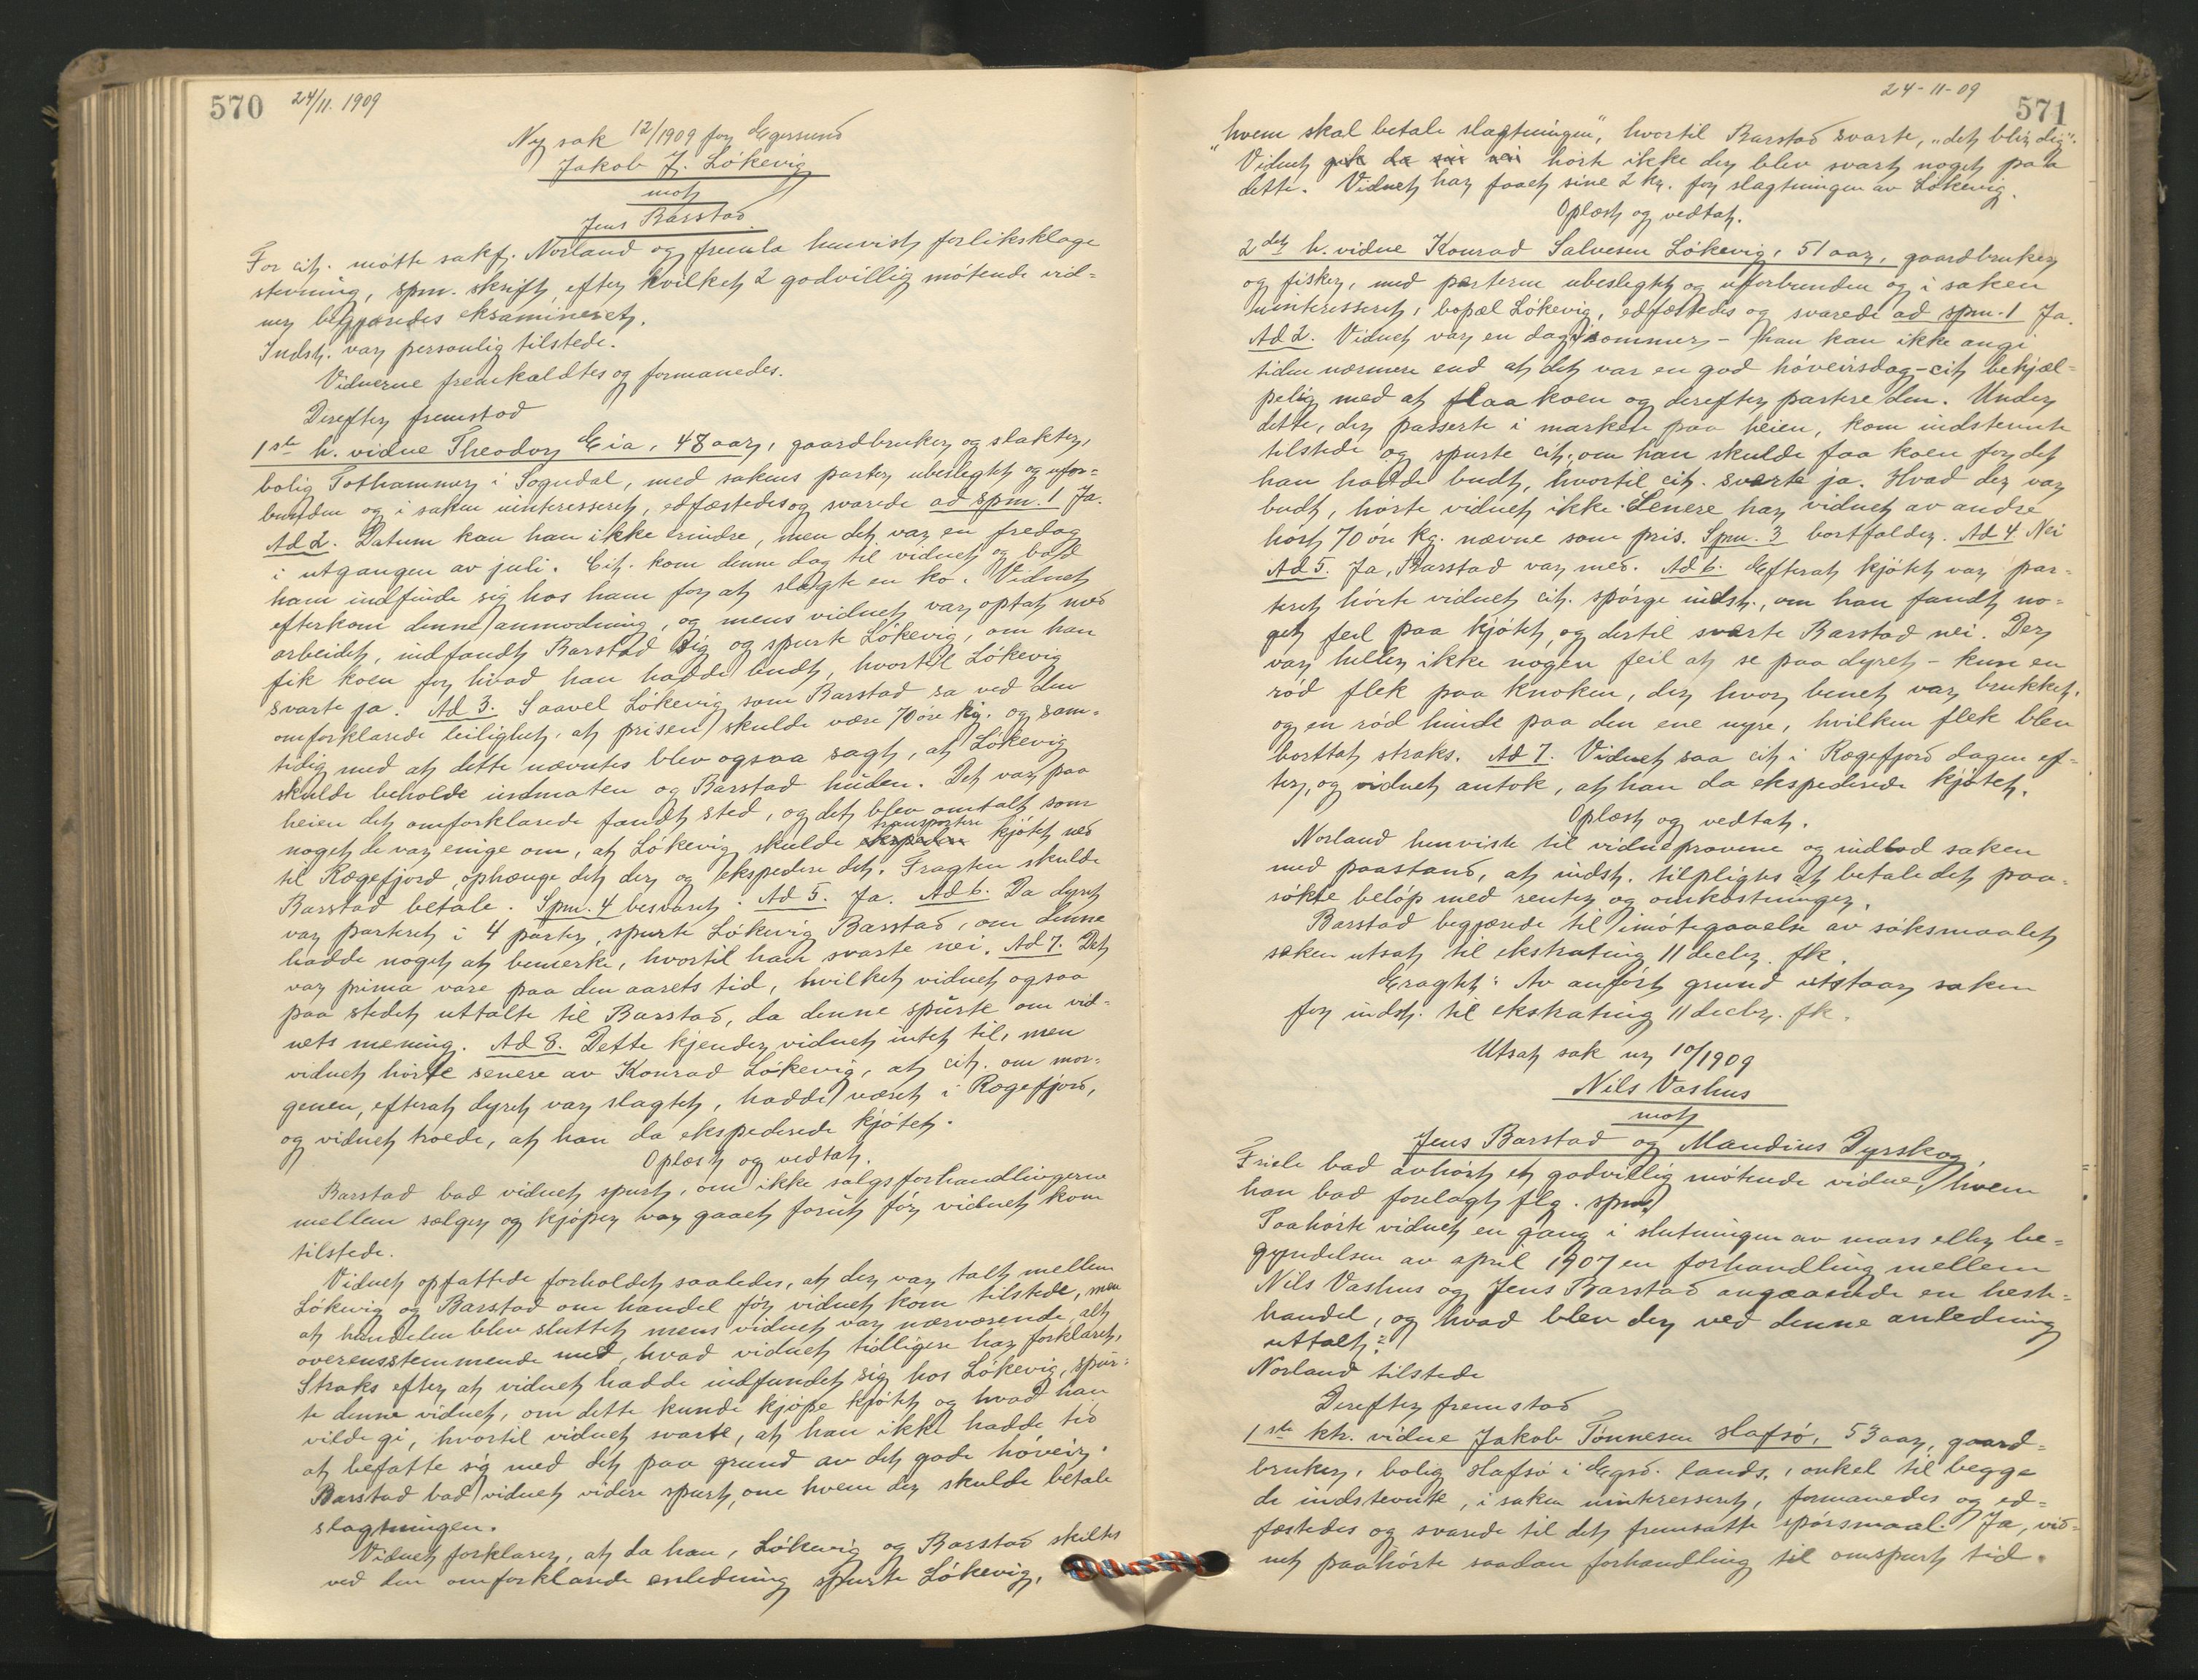 570 24/11. 1909
Ny sak 12/1909 for Egersund
Jakob J. Lökevig
mot
Jens Barstad.
For cit. mötte sakf. Norland og fremla henvist forliksklage
stevning, spm. skrift, efter hvilket 2 godvillig mötende vid-
ner begjæredes eksamineret.
Indst. var personlig tilstede.
Vidnerne fremkaldtes og formanedes.
Derefter fremstod
1ste h. vidne Theodor Eia, 48 aar, gaardbruker og slakter,
bolig Tothammer i Sogndal, med sakens parter ubeslegtet og ufor-
bunden og i saken uinteresseret, edfæstedes og svarede ad spm. 1 Ja.
Ad 2. Datum kan han ikke erindre, men det var en fredag
i utgangen av juli. Cit. kom denne dag til vidnet og bad
ham indfinde sig hos ham for at slagte en ko. Vidnet
efterkom denne anmodning, og mens vidnet var optat med
arbeidet, indfandt Barstad sig og spurte Lökevig, om han
fik koen for hvad han hadde budt, hvortil Lökevig
svarte ja. Ad 3. Saavel Lökevig som Barstad sa ved den
omforklarede leilighet, at prisen skulde være 70 öre kg. og sam-
tidig med at dette nævntes blev ogsaa sagt, at Lökevig
skulde beholde indmaten og Barstad huden. Det var paa
heien det omforklarede fandt sted, og det blev omtalt som
noget de var enige om, at Lökevig skulde ekspedere transportere kjötet ned
til Rægefjord, ophænge det der og ekspedere det. Fragten skulde
Barstad betale. Spm. 4 besvaret. Ad 5. Ja. Ad 6. Da dyret
var parteret i 4 parter, spurte Lökevig Barstad, om denne
hadde noget at bemerke, hvortil han svarte nei. Ad 7. Det
var prima vare paa den aarets tid, hvilket vidnet ogsaa
paa stedet uttalte til Barstad, da denne spurte om vid-
nets mening. Ad 8. Dette kjender vidnet intet til, men
vidnet hörte senere av Konrad Lökevig, at cit. om mor-
genen, efterat dyret var slagtet, hadde været i Rægefjord,
og vidnet troede, at han da ekspederede kjötet.
Oplæst og vedtat.
Barstad bad vidnet spurt, om ikke salgsforhandlingerne
mellem sælger og kjöper var gaaet forut för vidnet kom
tilstede.
Vidnet opfattede forholdet saaledes, at der var talt mellem
Lökevig og Barstad om handel för vidnet kom tilstede, men
at handelen blev sluttet mens vidnet var nærværende, alt
overensstemmende med, hvad vidnet tidligere har forklaret.
Straks efter at vidnet hadde indfundet sig hos Lökevig, spur-
te denne vidnet, om dette kunde kjöpe kjötet og hvad han
vilde gi, hvortil vidnet svarte, at han ikke hadde tid
at befatte sig med det paa grund av det gode höveir.
Barstad bad vidnet videre spurt, om hvem der skulde betale
slagtningen.
Vidnet forklarer, at da han, Lökevig og Barstad skiltes
ved den omforklarede anledning spurte Lökevig,
24-11-09 571
"hvem skal betale slagtningen", hvortil Barstad svarte, "det blir dig".
Vidnet hörte ikke der blev svart noget paa
dette. Vidnet har faaet sine 2 kr. for slagtningen av Lökevig.
Oplæst og vedtat.
2det h. vidne Konrad Salvesen Lökevig, 51 aar, gaardbruker
og fisker, med parterne ubeslegtet og uforbunden og i saken
uinteresseret, bopæl Lökevig, edfæstedes og svarede ad spm. 1 Ja.
Ad 2. Vidnet var en dag isommer – han kan ikke angi
tiden nærmere end at det var en god höveirsdag – cit. behjæl-
pelig med at flaa koen og derefter partere den. Under
dette, der passerte i marken paa heien, kom indstevnte
tilstede og spurte cit., om han skulde faa koen for det
han hadde budt, hvortil cit. svarte ja. Hvad der var
budt, hörte vidnet ikke. Senere har vidnet av andre
hört 70 öre kg. nævne som pris. Spm. 3 bortfalder. Ad 4. Nei
Ad 5. Ja, Barstad var med. Ad 6. Efterat kjötet var par-
teret hörte vidnet cit. spörge indst., om han fandt no-
get feil paa kjötet, og dertil svarte Barstad nei. Der
var heller ikke nogen feil at se paa dyret – kun en
röd flek paa knoken, der hvor benet var brukket,
og en röd hinde paa den ene nyre, hvilken flek blev
borttat straks. Ad 7. Vidnet saa cit. i Rægefjord dagen ef-
ter, og vidnet antok, at han da ekspederede kjötet.
Oplæst og vedtat.
Norland henviste til vidneprovene og indlod saken
med paastand, at indst. tilpligtes at betale det paa-
sökte belöp med renter og omkostninger.
Barstad begjærede til imötegaaelse av söksmaalet
saken utsat til ekstrating 11 decbr. fk.
Eragtet: Av anfört grund utstaar saken
for indst. til ekstrating 11 decbr. fk.
Utsat sak nr 10/1909
Nils Vashus
mot
Jens Barstad og Mandius Dyrskog.
Friele bad avhört et godvillig mötende vidne, hvem
han bad forelagt flg. spm.
Paahörte vidnet en gang i slutningen av mars eller be-
gyndelsen av april 1907 en forhandling mellem
Nils Vashus og Jens Barstad angaaende en heste-
handel, og hvad blev der ved denne anledning
uttalt?
Norland tilstede
Derefter fremstod
1ste ktr. vidne Jakob Tønnesen Slafsö, 53 aar, gaard-
bruker, bolig Slafsö i Egrd. lands., onkel til begge
de indstevnte, i saken uinteresseret, formanedes og ed-
fæstedes og svarede til det fremsatte spörsmaal: Ja, vid-
net paahörte saadan forhandling til omspurt tid.